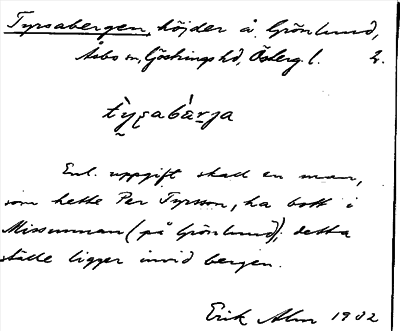 Tyrsabergen, höjder å Grönlund,
Åsbo sn, Göstrings hd, Österg. l. 2.
Enl. uppgift skall en man,
som hette Per Tyrsson, ha bott i
Missunnan (på Grönlund); detta
ställe ligger invid bergen.
Erik Alm 1902